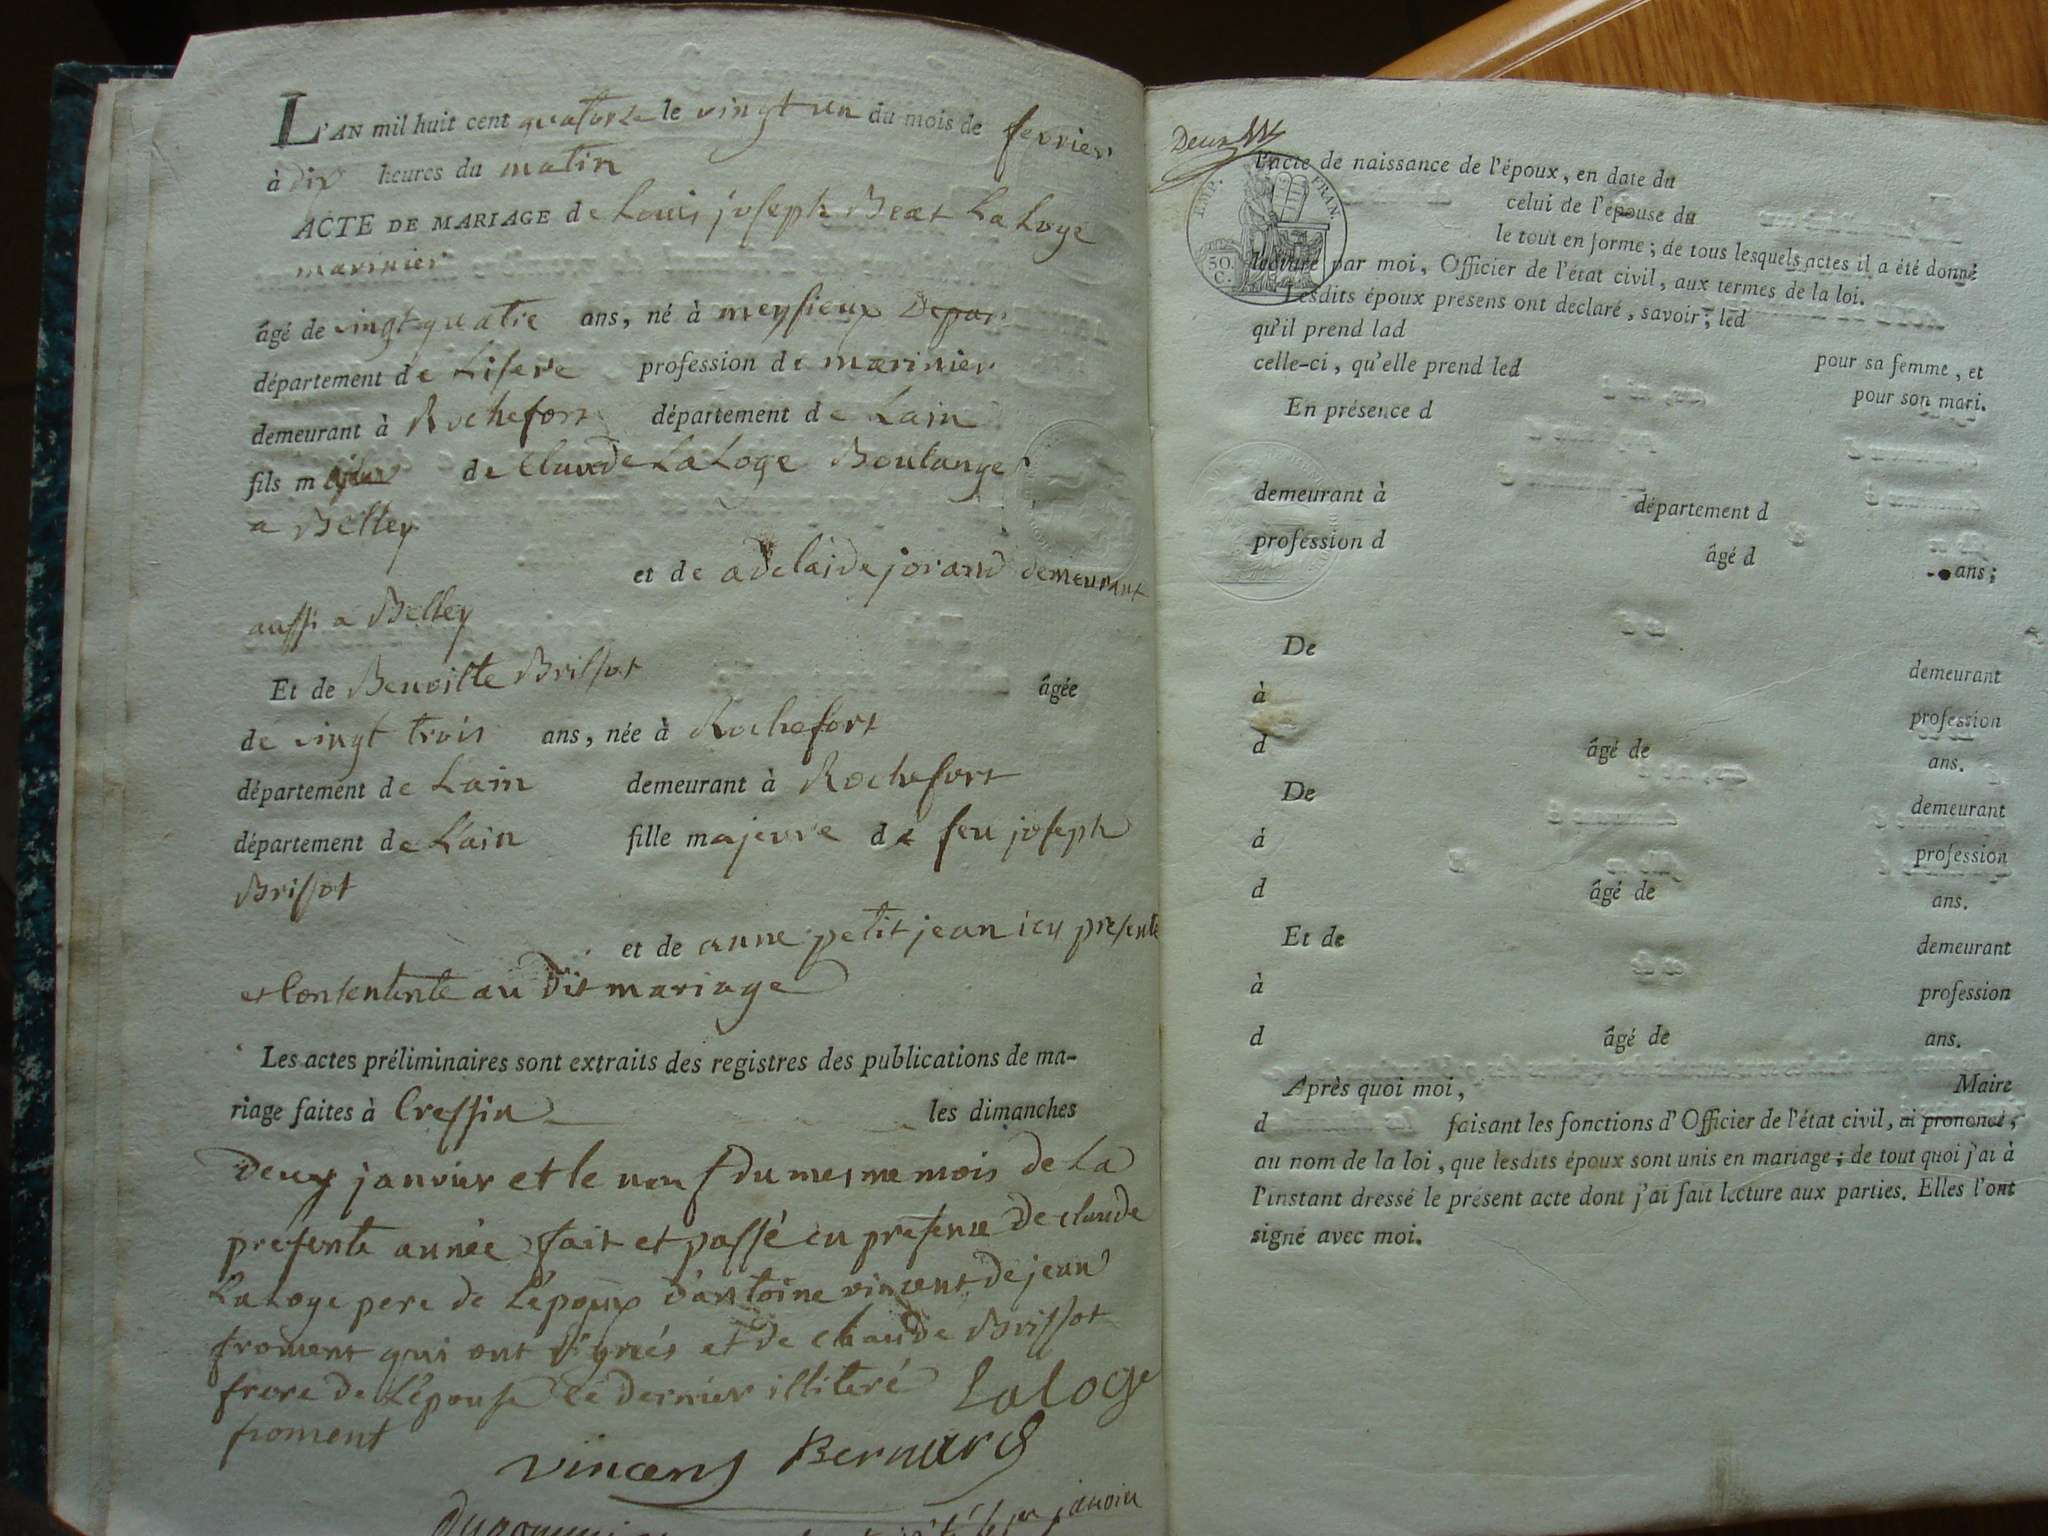 L'AN mil huit cent quatorze le vingt un du mois de fevrier
à dix heures du matin
ACTE DE MARIAGE de Louis joseph Beat La Loge
marinier
âgé de vingt quatre ans, né à meysieux Depar
département de Lisere profession de marinier
demeurant à Rochefort département de Lain
fils majeur de Claude La Loge Boulanger
a Belley
et de adelaide jorand demeurant
aussi a Belley
Et de Benoitte Brissot âgée
de vingt trois ans, née à Rochefort
département de Lain demeurant à Rochefort
département de L'ain fille majeure de feu joseph
Brissot
et de anne petit jean icy presente
et Consentente au Dit mariage
Les actes préliminaires sont extraits des registres des publications de ma-
riage faites à Cressin les dimanches
Deux janvier et le neuf du mesme mois de La
presente année fait et passé en presence De claude
LaLoge pere de L'époux D'antoine vincent de jean
froment qui ont signés et de claude Brissot
frere de L'épouse le dernier illiteré LaLoge
froment
vincent Bernard
janvier
Deux
EMP. FRAN.
50.
C.
l'acte de naissance de l'époux, en date du
celui de l'épouse du
le tout en forme; de tous lesquels actes il a été donné
lecture par moi, Officier de l'état civil, aux termes de la loi.
Lesdits époux présens ont declaré, savoir; led
qu'il prend lad
pour sa femme, et
celle-ci, qu'elle prend led
pour son mari.
En présence d
demeurant à département d
profession d âgé d ans;
De demeurant
à profession
d âgé de ans.
De demeurant
à profession
d âgé de ans.
Et de demeurant
à profession
d âgé de ans.
Après quoi moi, Maire
d faisant les fonctions d'Officier de l'état civil, ai prononcé,
au nom de la loi, que lesdits époux sont unis en mariage; de tout quoi j'ai à
l'instant dressé le présent acte dont j'ai fait lecture aux parties. Elles l'ont
signé avec moi.